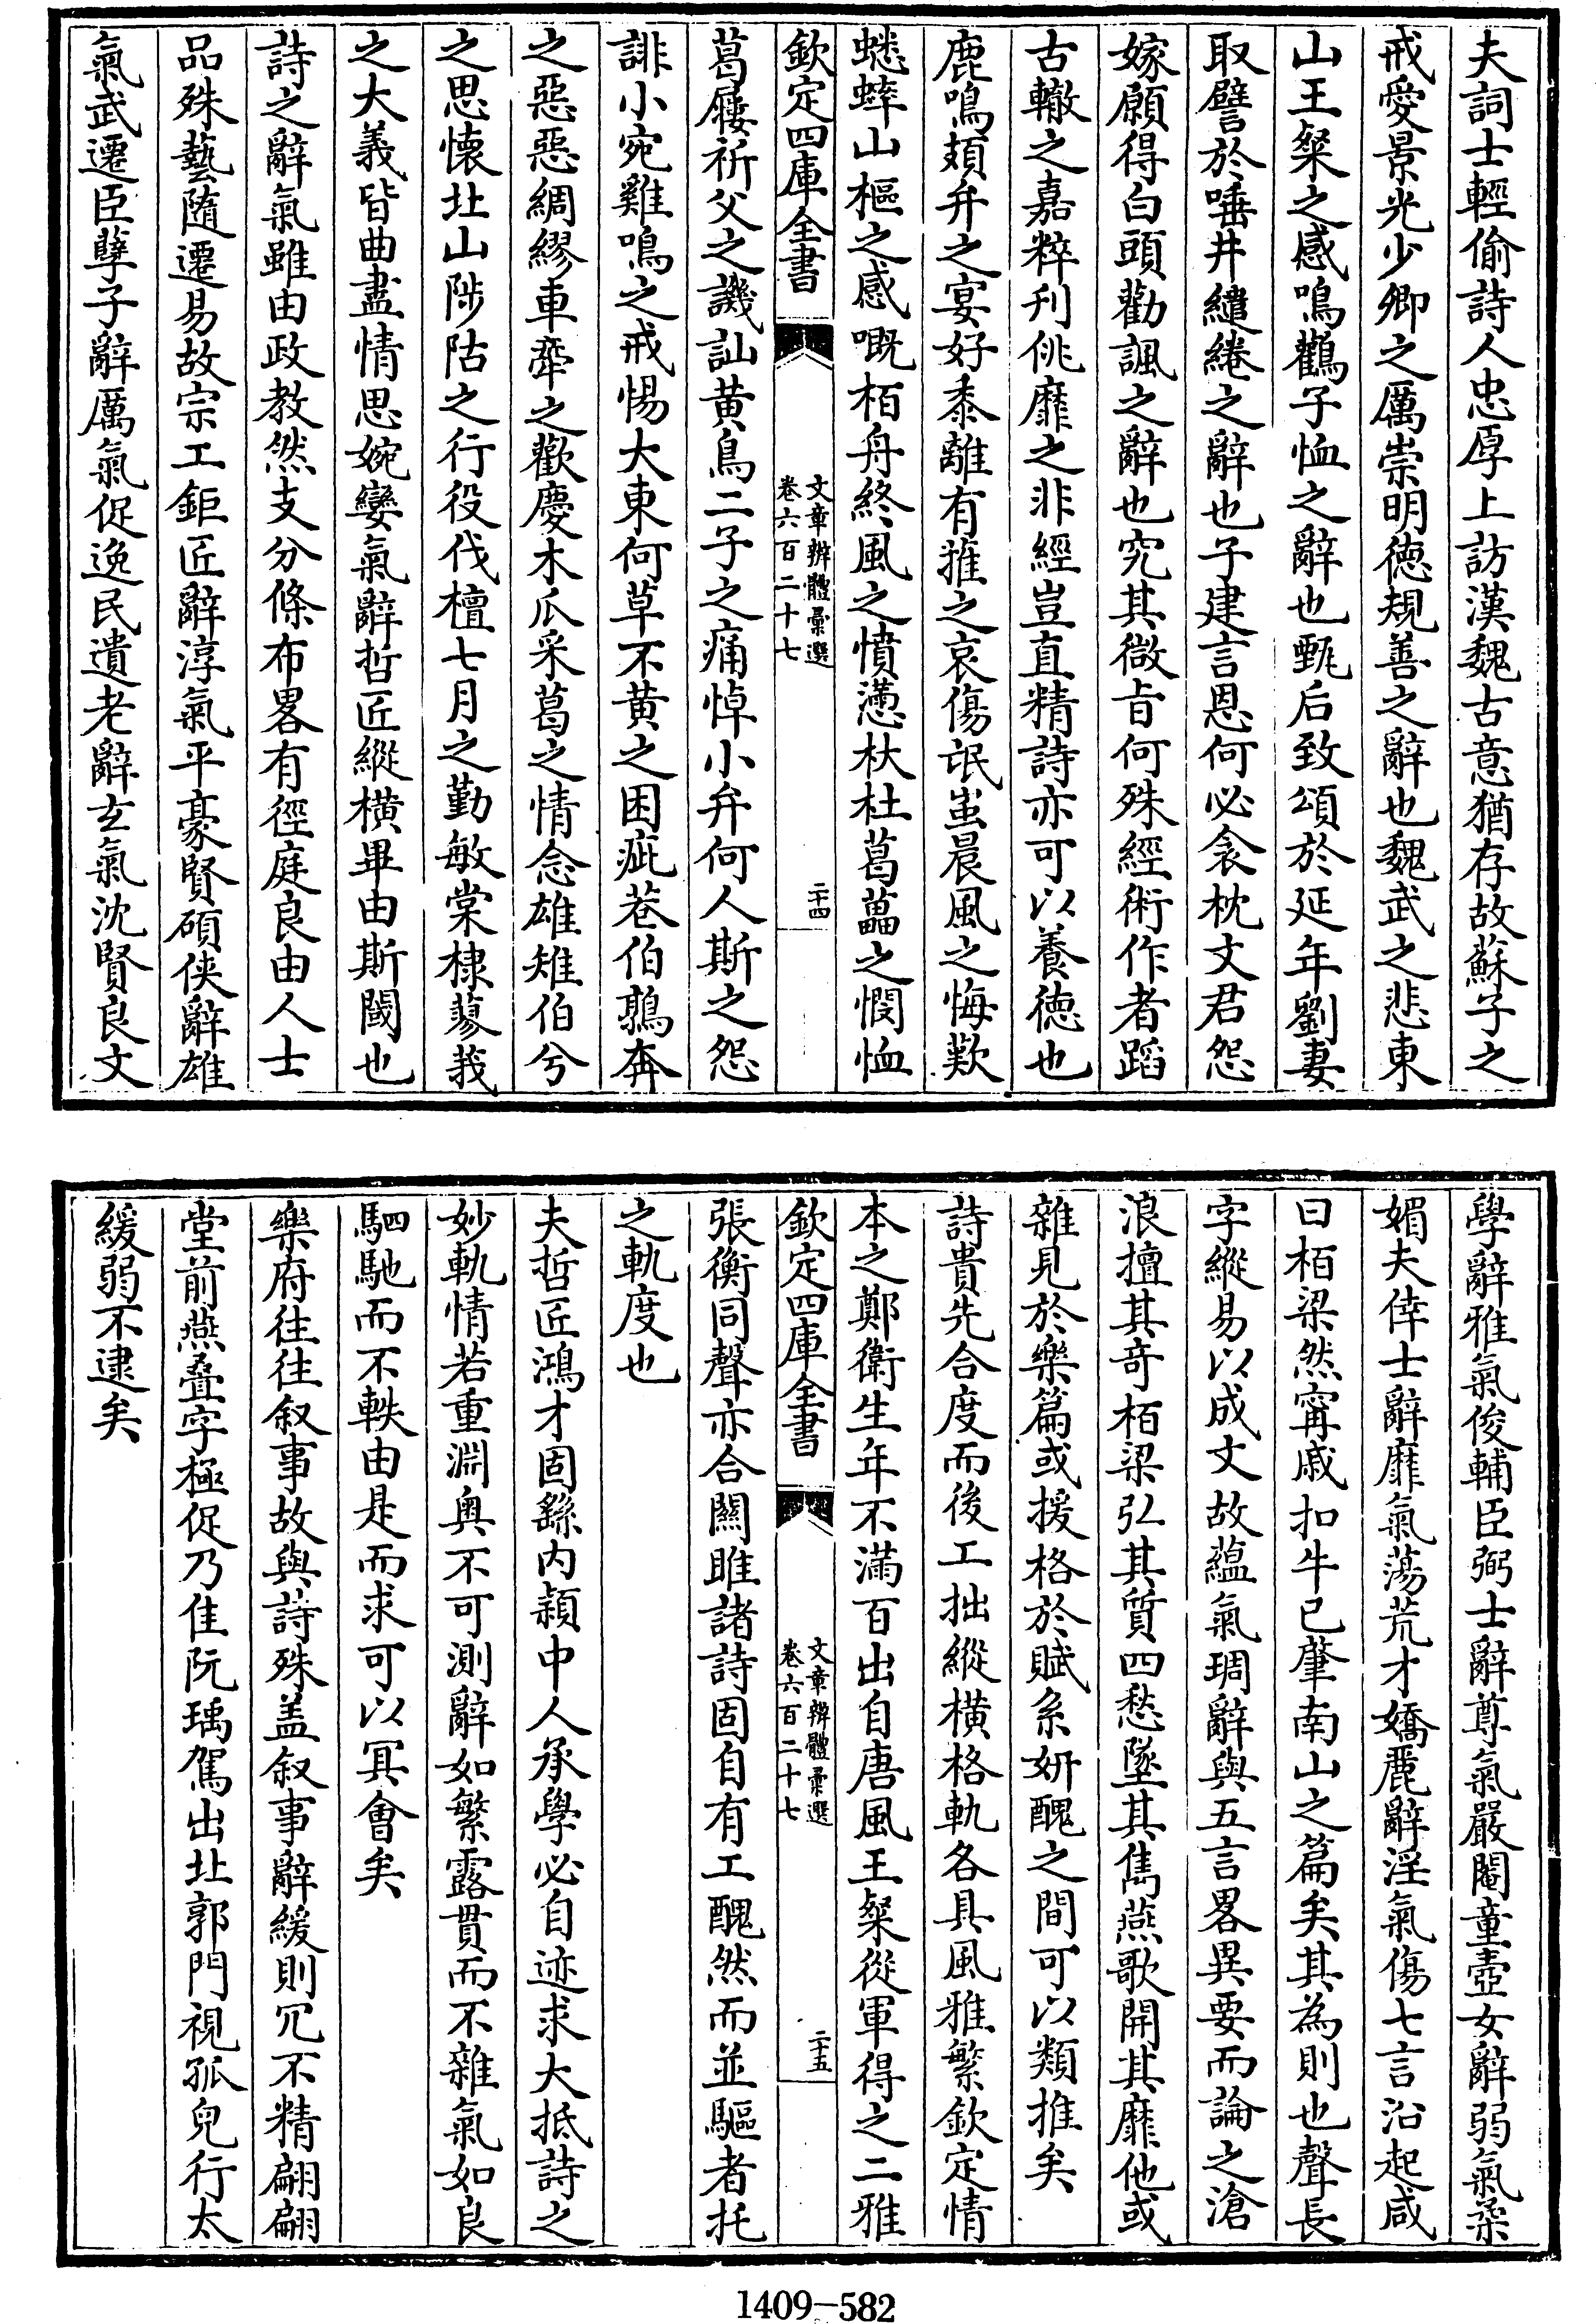 夫詞士輕偷詩人忠厚上訪漢魏古意猶存故蘇子之
戒愛景光少卿之厲崇明德規善之辭也魏武之悲東
山王粲之感鳴鸛子恤之辭也甄后致頌於延年劉妻
取譬於唾井繾綣之辭也子建言恩何必衾枕文君怨
嫁願得白頭勸諷之辭也究其微旨何殊經術作者蹈
古轍之嘉粹刋佻靡之非經豈直精詩亦可以養德也
鹿鳴頍弁之宴好黍離有蓷之哀傷氓蚩晨風之悔歎
蟋蟀山樞之感嘅栢舟終風之憤懣杕杜葛藟之憫恤
欽定四庫全書
文章辨體彙選
卷六百二十七
二十四
葛屨祈父之譏訕黃鳥二子之痛悼小弁何人斯之怨
誹小宛雞鳴之戒惕大東何草不黃之困疵巷伯鶉奔
之惡惡綢繆車舝之歡慶木瓜采葛之情念雄雉伯兮
之思懷北山陟岵之行役伐檀七月之勤敏棠棣蓼莪
之大義皆曲盡情思婉孌氣辭哲匠縱橫畢由斯閾也
詩之辭氣雖由政教然支分條布畧有徑庭良由人士
品殊藝隨遷易故宗工鉅匠辭淳氣平豪賢碩俠辭雄
氣武遷臣孽子辭厲氣促逸民遺老辭玄氣沈賢良文
學辭雅氣俊輔臣弼士辭尊氣嚴閹童壼女辭弱氣柔
媚夫倖士辭靡氣蕩荒才嬌麗辭淫氣傷七言沿起咸
曰栢梁然甯戚扣牛已肇南山之篇矣其為則也聲長
字縱易以成文故蘊氣琱辭與五言畧異要而論之滄
浪擅其奇栢梁弘其質四愁墜其雋燕歌開其靡他或
雜見於樂篇或援格於賦系妍醜之間可以類推矣
詩貴先合度而後工拙縱橫格軌各具風雅繁欽定情
本之鄭衛生年不滿百出自唐風王粲從軍得之二雅
欽定四庫全書
文章辨體彙選
卷六百二十七
二十五
張衡同聲亦合關雎諸詩固自有工醜然而並驅者托
之軌度也
夫哲匠鴻才固繇内穎中人承學必自迹求大抵詩之
妙軌情若重淵奥不可測辭如繁露貫而不雜氣如良
駟馳而不軼由是而求可以冥會矣
樂府往往叙事故與詩殊盖叙事辭緩則冗不精翩翩
堂前燕叠字極促乃佳阮瑀駕出北郭門視孤兒行太
緩弱不逮矣
1409—582